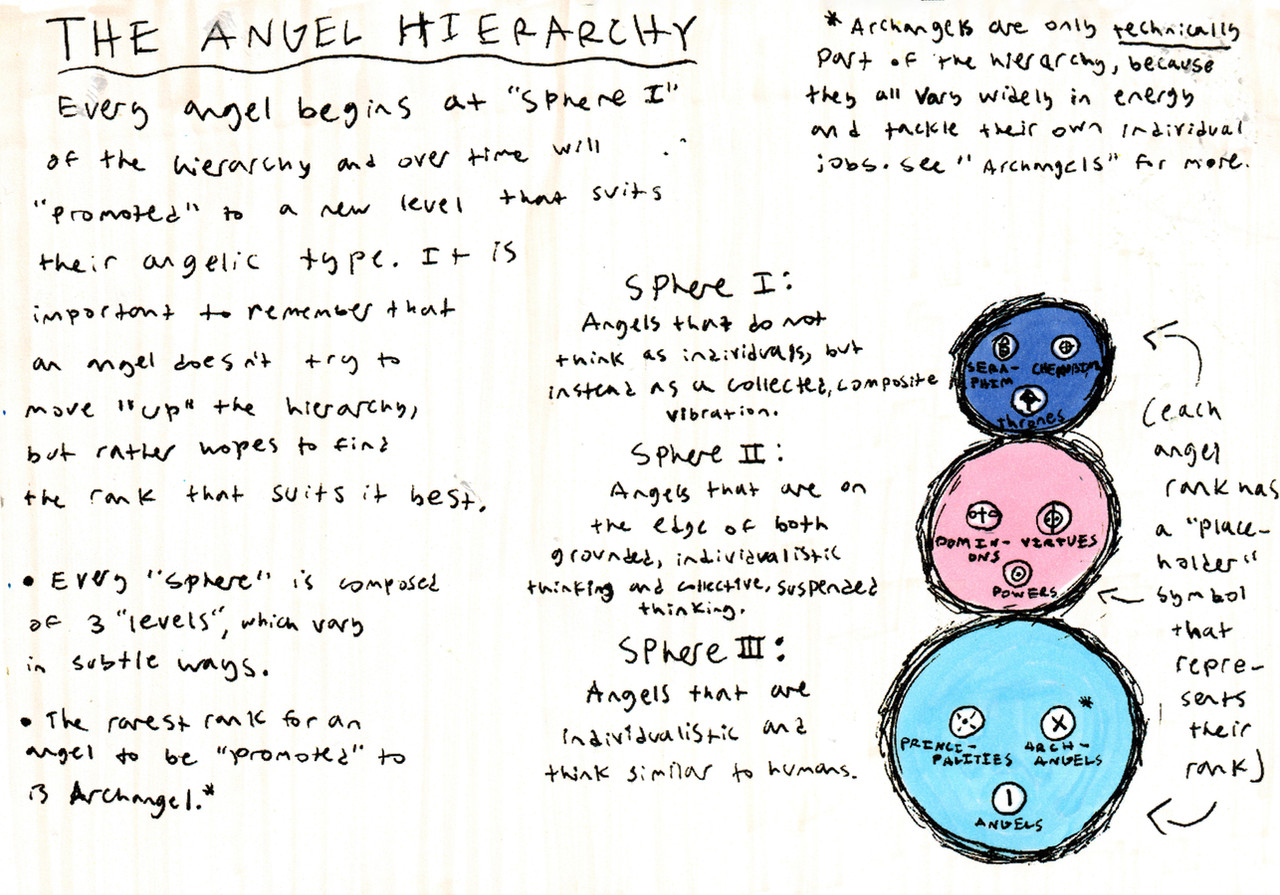 THE ANGEL HIERARCHY
Every angel begins at "Sphere I"
of the hierarchy and over time will
"promoted" to a new level that suits
their angelic type. It is
important to remember that
an angel doesn't try to
move "up" the hierarchy,
but rather hopes to find
the rank that suits it best.
• Every "Sphere" is composed
of 3 "levels", which vary
in subtle ways.
• The rarest rank for an
angel to be "promoted" to
is Archangel.*
* Archangels are only technically
part of the hierarchy, because
they all vary widely in energy
and tackle their own individual
jobs. See "Archangels" for more.
Sphere I:
Angels that do not
think as individuals, but
instead as a collected, composite
vibration.
Sphere II:
Angels that are on
the edge of both
grounded, individualistic
thinking and collective, suspended
thinking.
Sphere III:
Angels that are
individualistic and
think similar to humans.
SERA-
PHIM
CHERUBIM
thrones
DOMIN-
ONS
VIRTUES
POWERS
PRINCI-
PALITIES
ARCH-
ANGELS
*
ANGELS
(each
angel
rank has
a "place-
holder"
symbol
that
repre-
sents
their
rank)